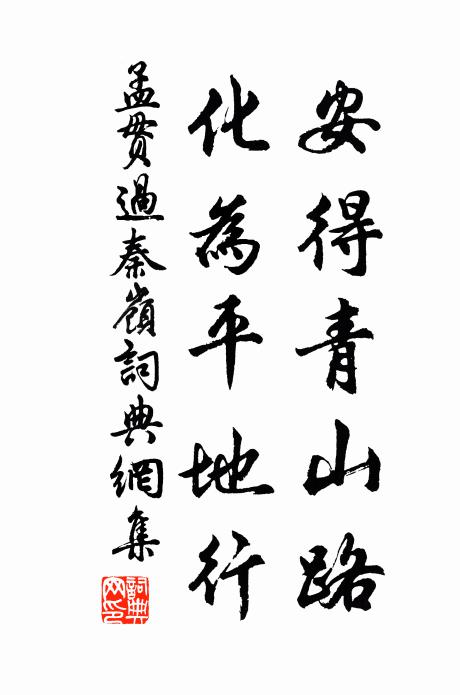 安得青山路
化為平地行
孟貫過秦嶺詞典網集
詞典網印